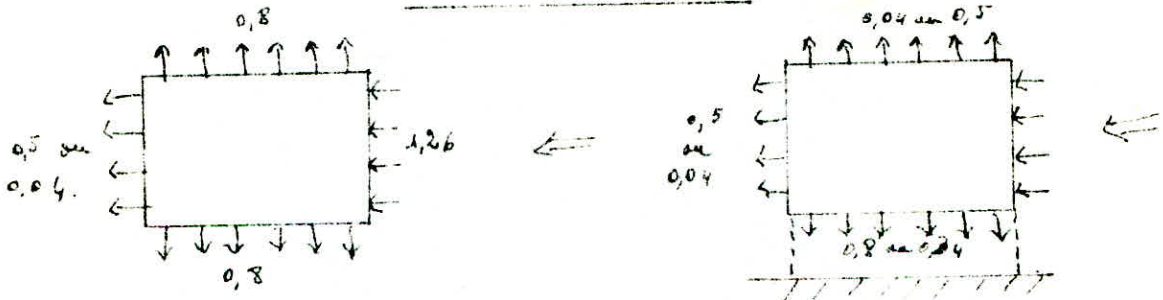 0,8
0,5 ou
0,04.
1,26
0,8
0,04 ou 0,5
0,5
ou
0,04
0,8 ou